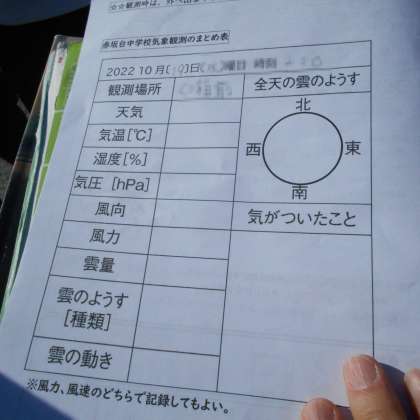 ☆☆観測時は、外へ出
赤坂台中学校気象観測のまとめ表
2022 10月(19)日
観測場所
天気
気温[℃]
湿度[%]
気圧 [hPa]
風向
風力
雲量
雲のようす
[種類]
雲の動き
全天の雲のようす
北
西 東
南
気がついたこと
※風力、風速のどちらで記録してもよい。